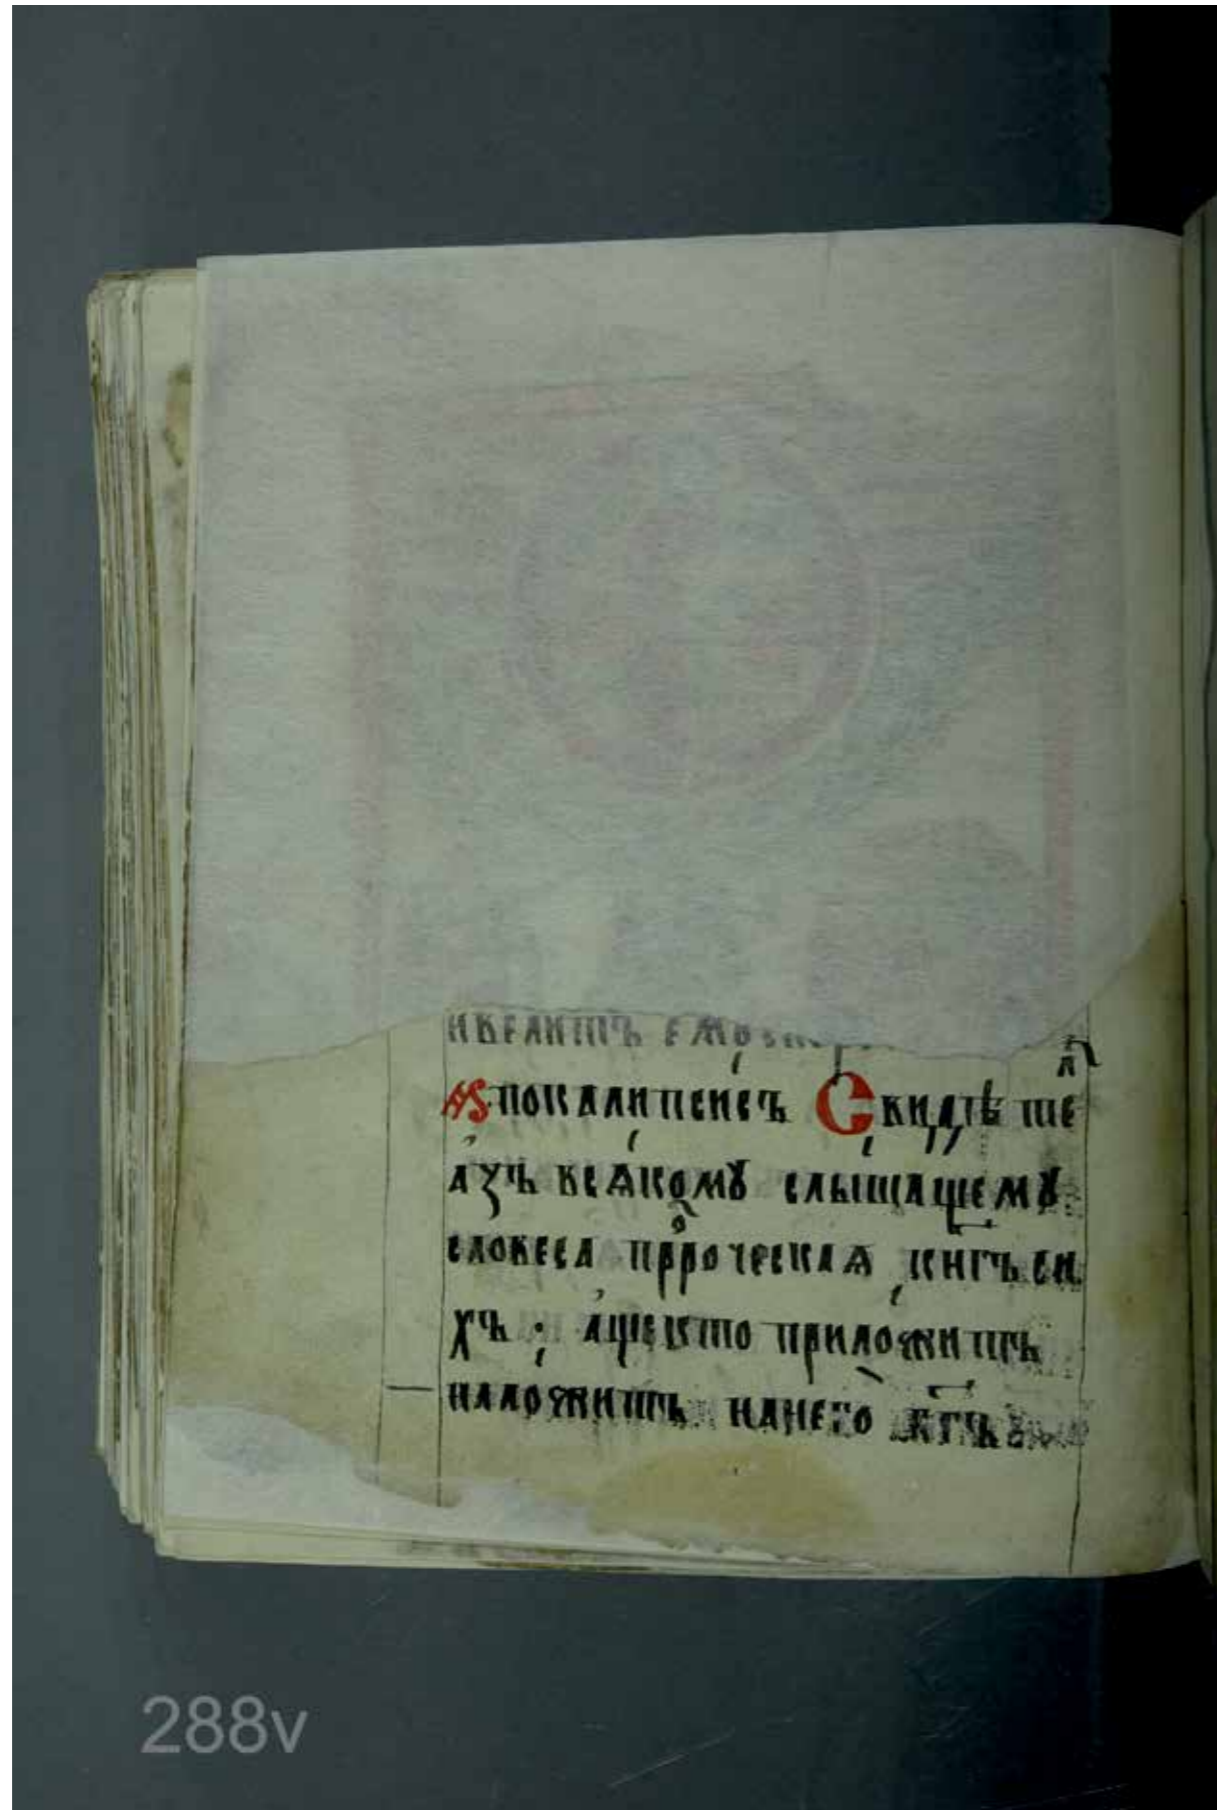 и велитъ емꙋ
Апокалипсисъ Свидѣтеⷧ҇
азъ всѧкомꙋ слышащемꙋ
словеса пррⷪ҇оческаѧ книгъ си
хъ : аще кто приложитъ
наложитъ на него б҃гъ
288v